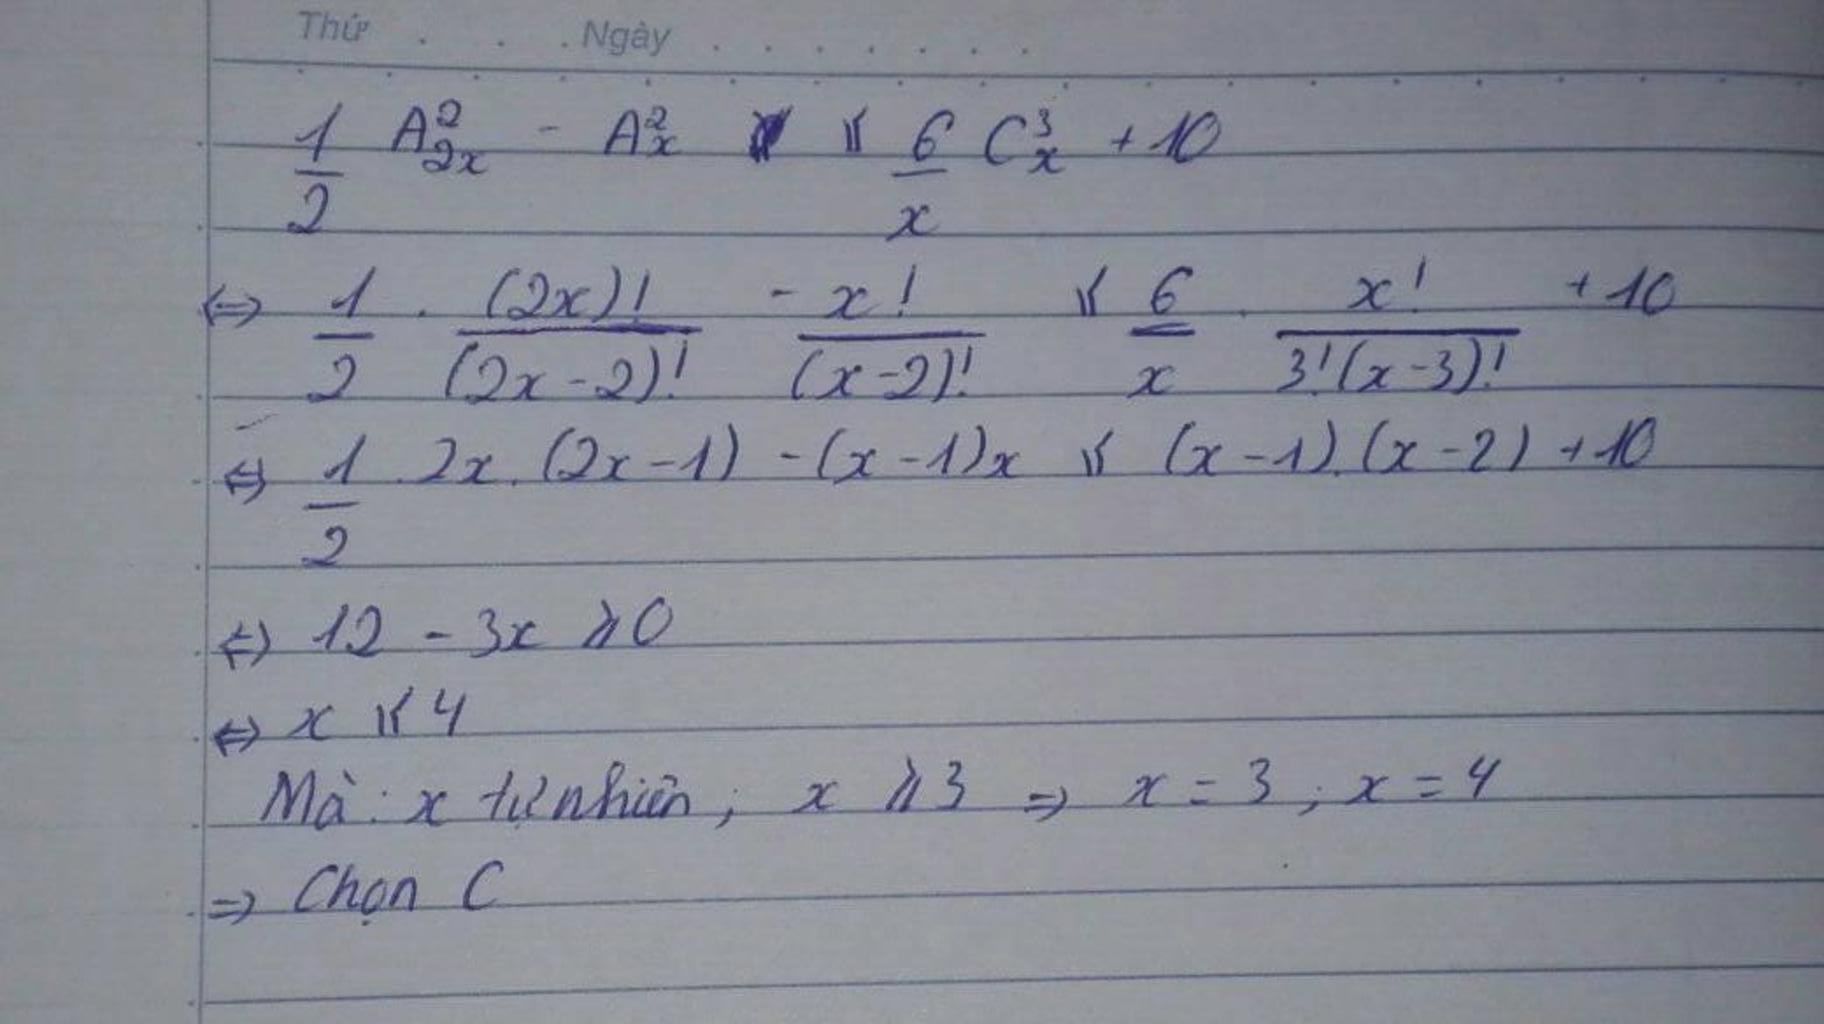 Thứ . . . Ngày . . . . . . .
1/2 A²₂ₓ - A²ₓ ≤ 6/x C³ₓ + 10
⇔ 1/2 . (2x)!/(2x-2)! - x!/(x-2)! ≤ 6/x . x!/3!(x-3)! + 10
⇔ 1/2 . 2x . (2x-1) - (x-1)x ≤ (x-1).(x-2) + 10
⇔ 12 - 3x ≥ 0
⇔ x ≤ 4
Mà: x tự nhiên ; x ≥ 3 ⇒ x = 3 ; x = 4
⇒ Chọn C